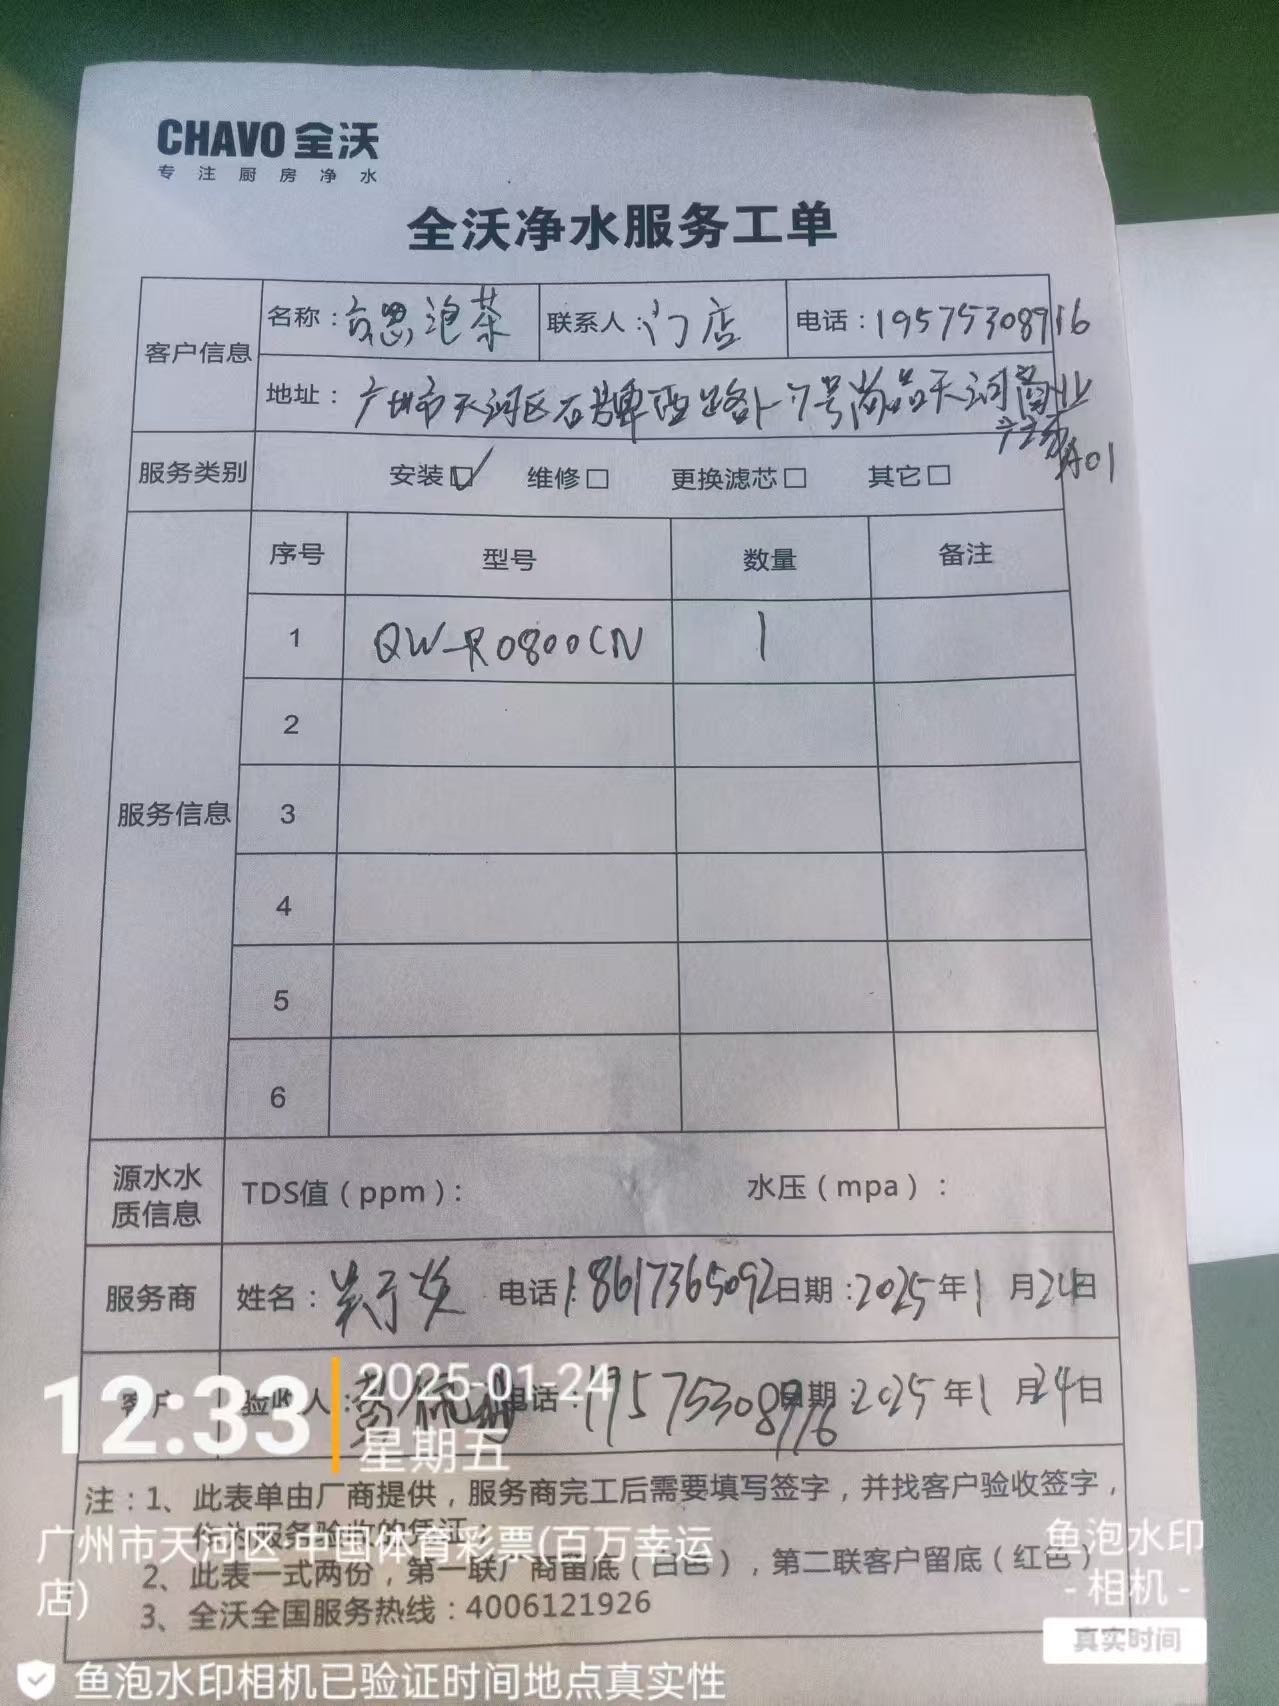 CHAVO 全沃
专注厨房净水
全沃净水服务工单
客户信息 名称：奇思泡茶 联系人：门店 电话：19575308916
地址：广州市天河区石牌西路卜7号尚品天河商业广场A01
服务类别 安装☑ 维修□ 更换滤芯□ 其它□
服务信息 序号 型号 数量 备注
1 QW-RO800CN 1
2
3
4
5
6
源水水质信息 TDS值（ppm）： 水压（mpa）：
服务商 姓名： 电话：18617365092 日期：2025年1月24日
客户 验收人： 电话：19575308916 日期：2025年1月24日
注：1、此表单由厂商提供，服务商完工后需要填写签字，并找客户验收签字，
作为服务验收的凭证；
2、此表一式两份，第一联厂商留底（白色），第二联客户留底（红色）
3、全沃全国服务热线：4006121926
12:33
2025-01-24
星期五
广州市天河区·中国体育彩票(百万幸运
店)
鱼泡水印
- 相机 -
真实时间
鱼泡水印相机已验证时间地点真实性